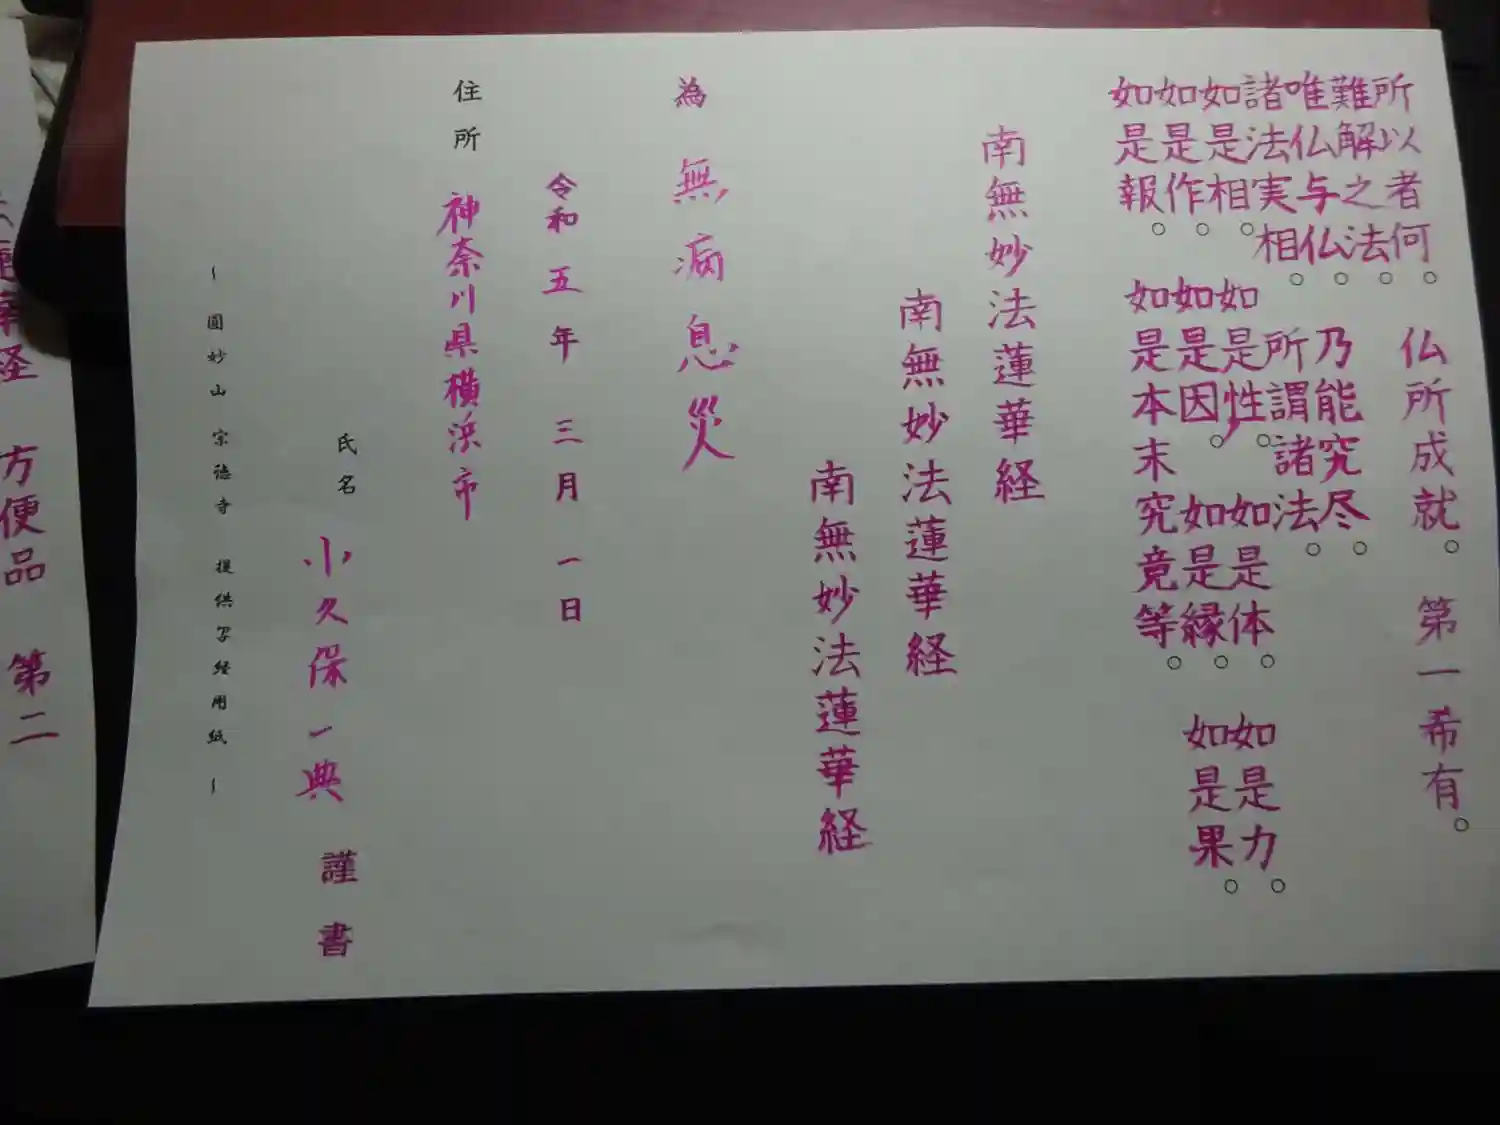 所以者何。仏所成就。第一希有。
難解之法。乃能究尽。
唯仏与仏。所謂諸法。
諸法実相
如是相。如是性。如是体。如是力。
如是作。如是因。如是縁。如是果。
如是報。如是本末究竟等。
南無妙法蓮華経
南無妙法蓮華経
南無妙法蓮華経
為 無病息災
令和五年 三月 一日
住所 神奈川県横浜市
氏名 小久保一典 謹書
~ 圓妙山 宗徳寺 提供写経用紙 ~
華経 方便品 第二